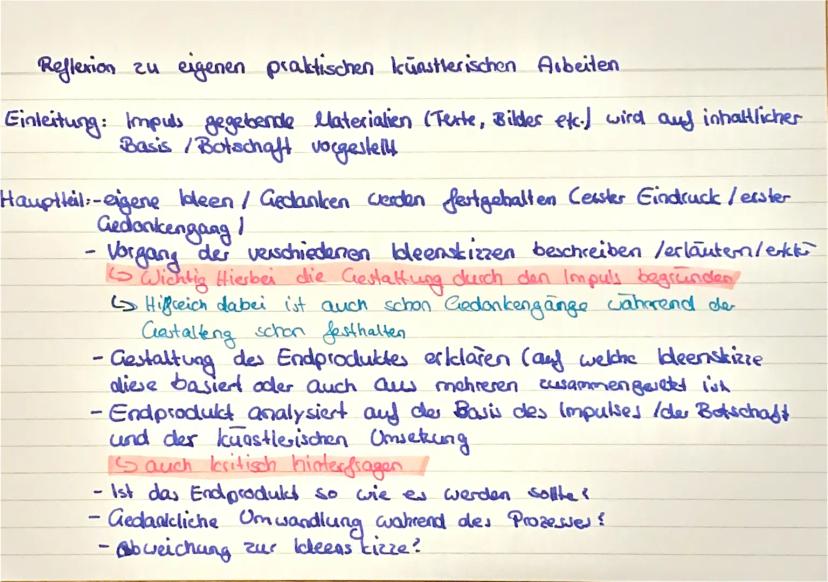 Reflexion zu eigenen praktischen künstlerischen Arbeiten
Einleitung: Impuls gegebende Materialien (Texte, Bilder etc.) wird auf inhaltlicher
Basis / Botschaft vorgestellt
Hauptteil:-eigene Ideen / Gedanken werden festgehalten (erster Eindruck / erster
Gedankengang)
- Vorgang der verschiedenen Ideenskizzen beschreiben /erläutern/
↳ Wichtig Hierbei die Gestaltung durch den Impuls begründen
↳ Hilfreich dabei ist auch schon Gedankengänge während der
Gestaltung schon festhalten
- Gestaltung des Endproduktes erklären (auf welche Ideenskizze
diese basiert oder auch aus mehreren zusammengesetzt ist
- Endprodukt analysiert auf der Basis des Impulses /der Botschaft
und der künstlerischen Umsetzung
↳ auch kritisch hinterfragen
- Ist das Endprodukt so wie es werden sollte?
- Gedankliche Umwandlung während des Prozesses?
- Abweichung zur Ideenskizze?